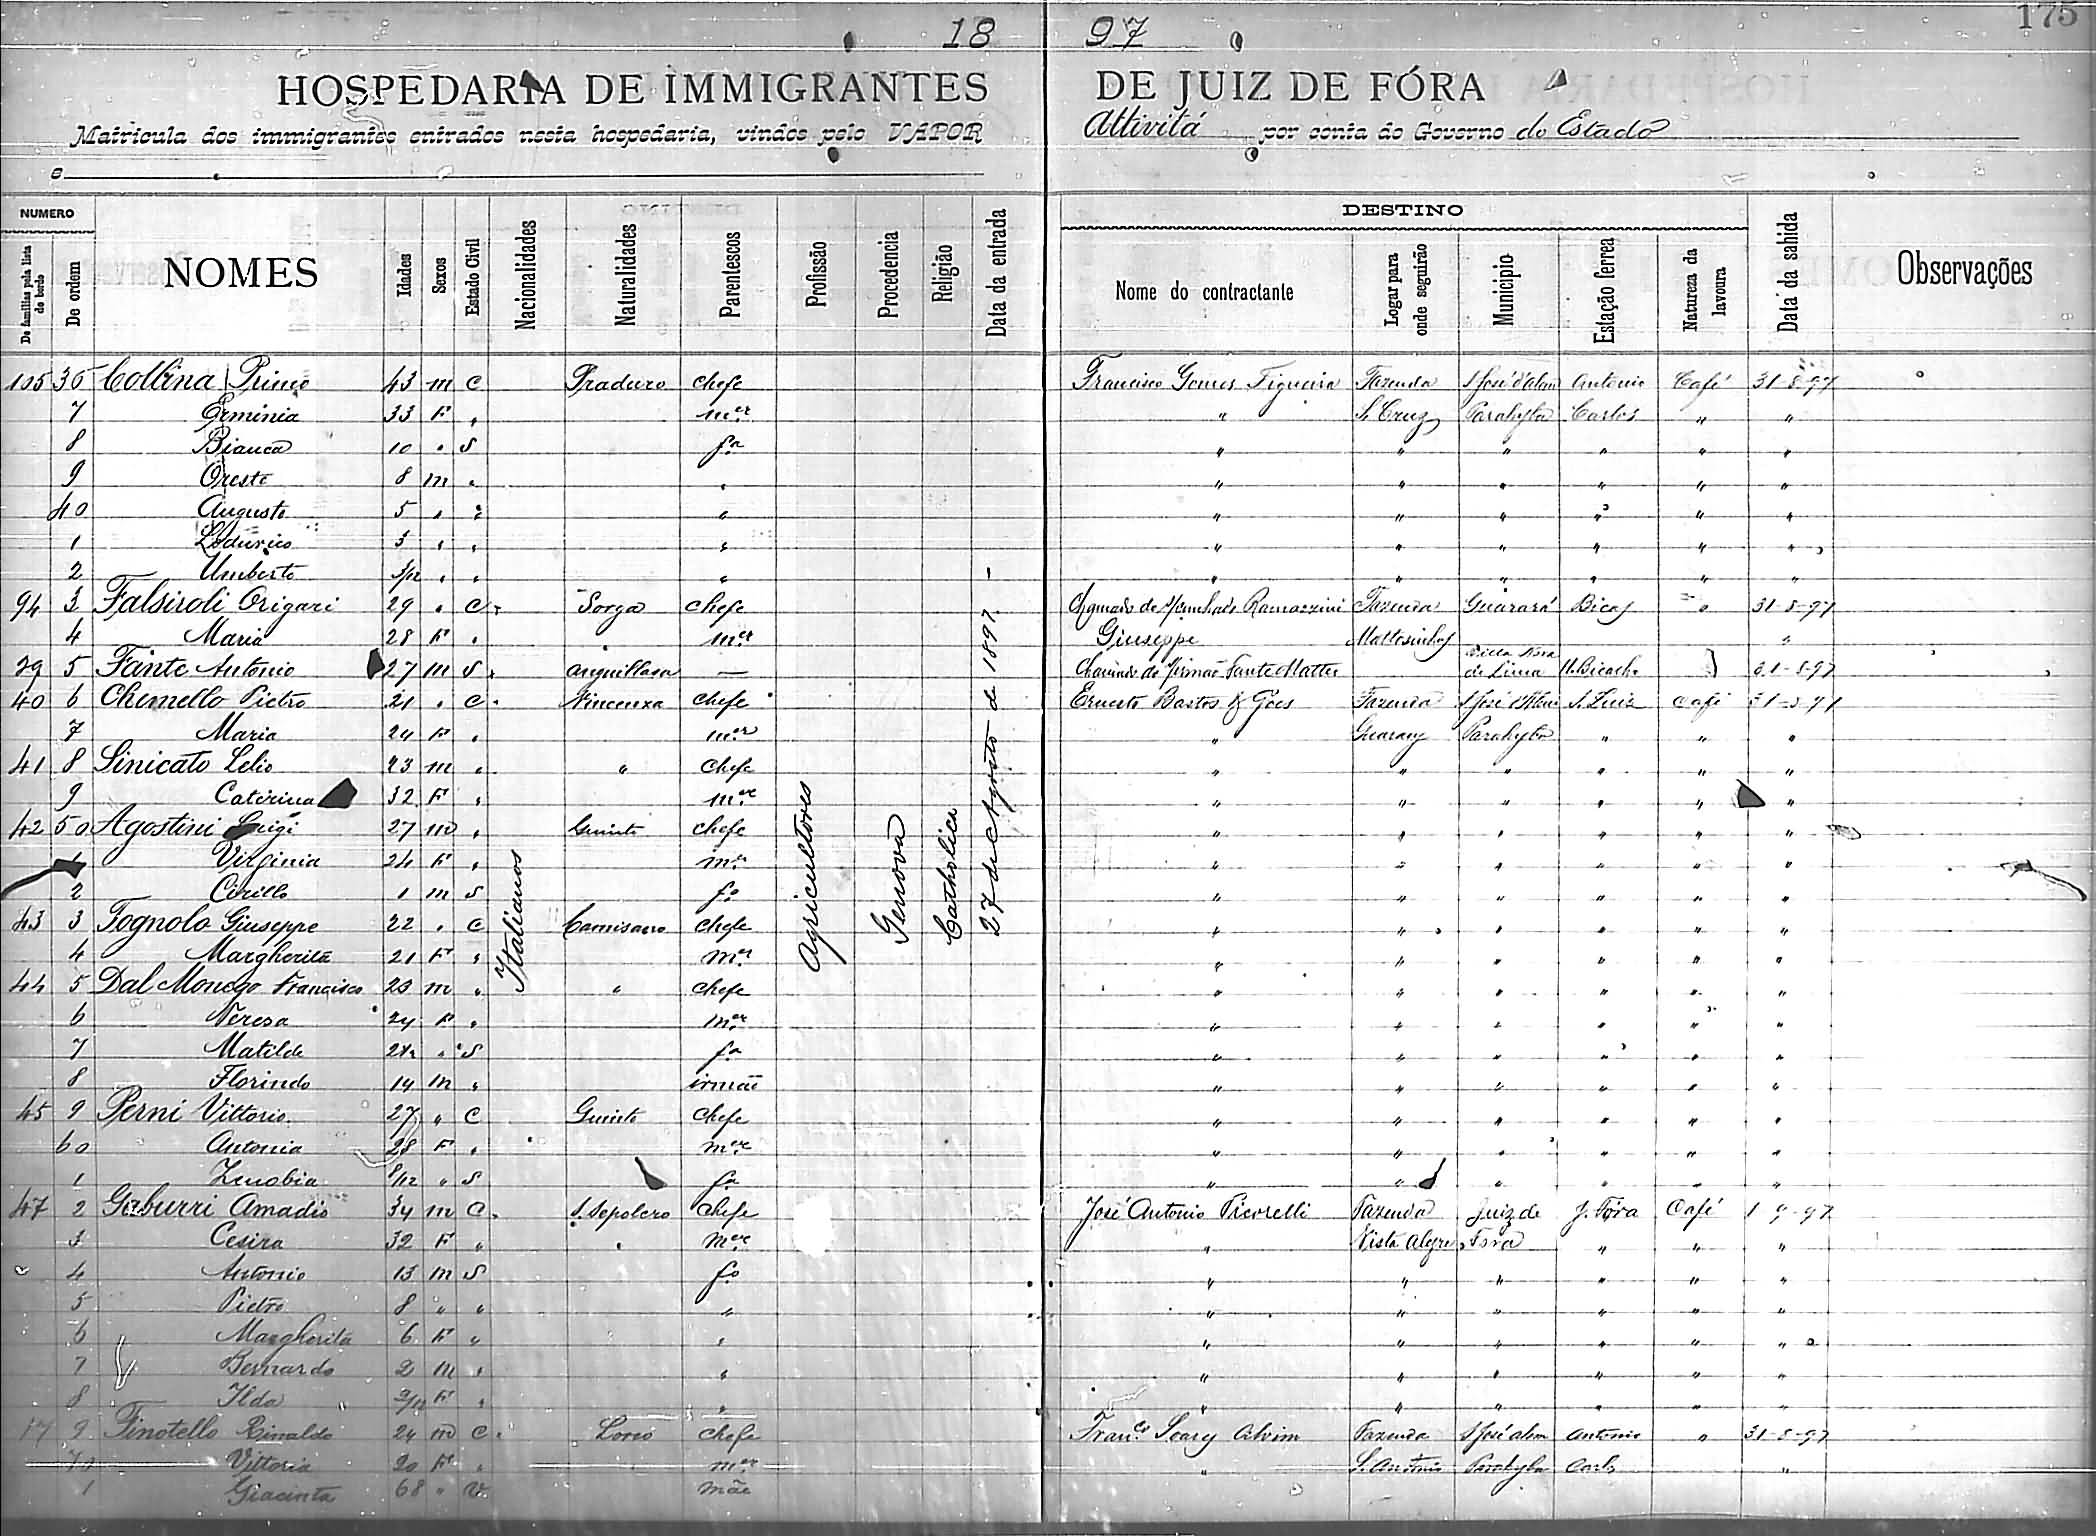 18 97
175
HOSPEDARIA DE IMMIGRANTES DE JUIZ DE FÓRA
Matricula dos immigrantes entrados nesta hospedaria, vindos pelo VAPOR Attivitá por conta do Governo do Estado
e
NUMERO
De familias pela lista de bordo
De ordem
NOMES
Idades
Sexos
Estado Civil
Nacionalidades
Naturalidades
Parentescos
Profissão
Procedencia
Religião
Data da entrada
DESTINO
Nome do contractante
Logar para onde seguirão
Municipio
Estação ferrea
Natureza da lavoura
Data da sahida
Observações
105 36 Collina Primo 43 m C Praduro chefe Francisco Gomes Figueira Fazenda S José d'Alem Antonio Café 31-8-97
7 Erminia 33 F " mer " S. Cruz Parahyba Carlos " "
8 Bianca 10 " S fa " " " " " "
9 Oreste 8 m " " " " " " " "
40 Augusto 5 " " " " " " " " "
1 3 " " " " " " " " "
2 Umberto " " " " " " " " "
94 3 Falsiroli Origari 29 " C Sorga chefe Ramazzini Fazenda Guarará Bicas " 31-8-97
4 Maria 28 F " mer Giuseppe Mattosinhos "
29 5 Fante Antonio 27 m S anguillara — Fante Matteo de Lima 31-8-97
40 6 Chemello Pietro 21 " C Vincenza chefe Ernesto Bastos & Góes Fazenda S José S. Luiz Café 31-8-97
7 Maria 24 F " mer " Guarany Parahyba " " "
41 8 Sinicato Lelio 43 m " " chefe " " " " " "
9 Caterina 32 F " mer " " " " " "
42 50 Agostini Luigi 27 m " Quinto chefe " " " " " "
1 Virginia 24 F " mer " " " " " "
2 Cirillo 1 m S fo " " " " " "
43 3 Tognolo Giuseppe 22 " C Camisano chefe " " " " " "
4 Margherita 21 F " mer " " " " " "
44 5 Dal Monego Francisco 29 m " " chefe " " " " " "
6 Teresa 24 F " mer " " " " " "
7 Matilde " S fa " " " " " "
8 Florindo 14 m " irmão " " " " " "
45 9 Perni Vittorio 27 " C Quinto chefe " " " " " "
60 Antonia 28 F " mer " " " " " "
1 Zenobia 8/12 " S fa " " " " " "
47 2 Gaburri Amadio 34 m C S. Sepolcro chefe José Antonio Picorelli Fazenda Juiz de J. Fóra Café 1-9-97
3 Cesira 32 F " " mer " Vista Alegre Fora " " "
4 Antonio 13 m S fo " " " " " "
5 Pietro 8 " " " " " " " " "
6 Margherita 6 F " " " " " " " "
7 Bernardo 2 m " " " " " " " "
8 Ilda F " " " " " " " "
17 9 Finotello Rinaldo 24 m C Loreo chefe Alvim Fazenda S José alem Antonio " 31-8-97
70 Vittoria 20 F " mer " S. Antonio Parahyba Carlos "
1 Giacinta 68 " V mãe
Italianos
Agricultores
Genova
Catholica
27 de Agosto de 1897